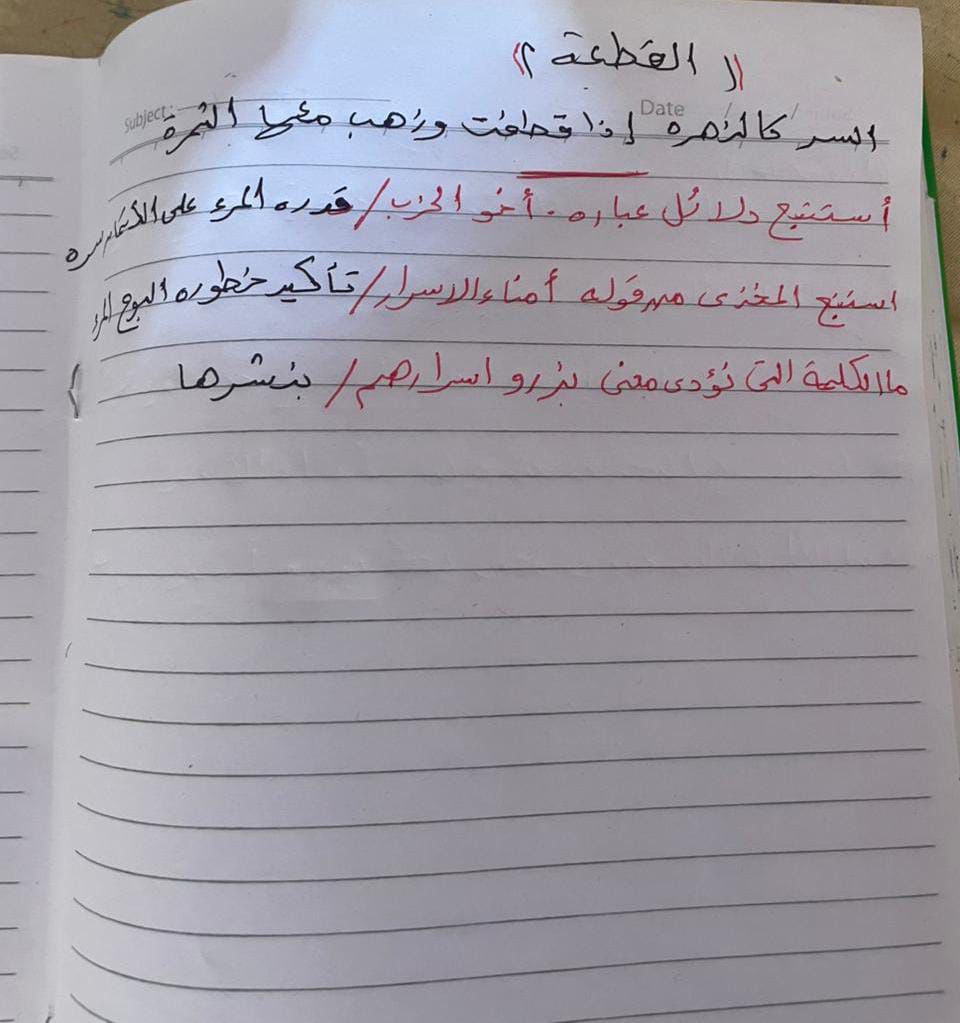 (( القطعة ))
Subject: Date / /
السر كالزهره إذا قطفت وذهب معها الثمرة
أستنتج دلائل عباره . أخو الحزب / قدره المرء على الأئتمام سره
استنتج المغزى من قوله أمناء الاسرار / تأكيد خطوره البوح المرء
ما الكلمة التي تؤدى معنى بذرو اسرارهم / بنشرها